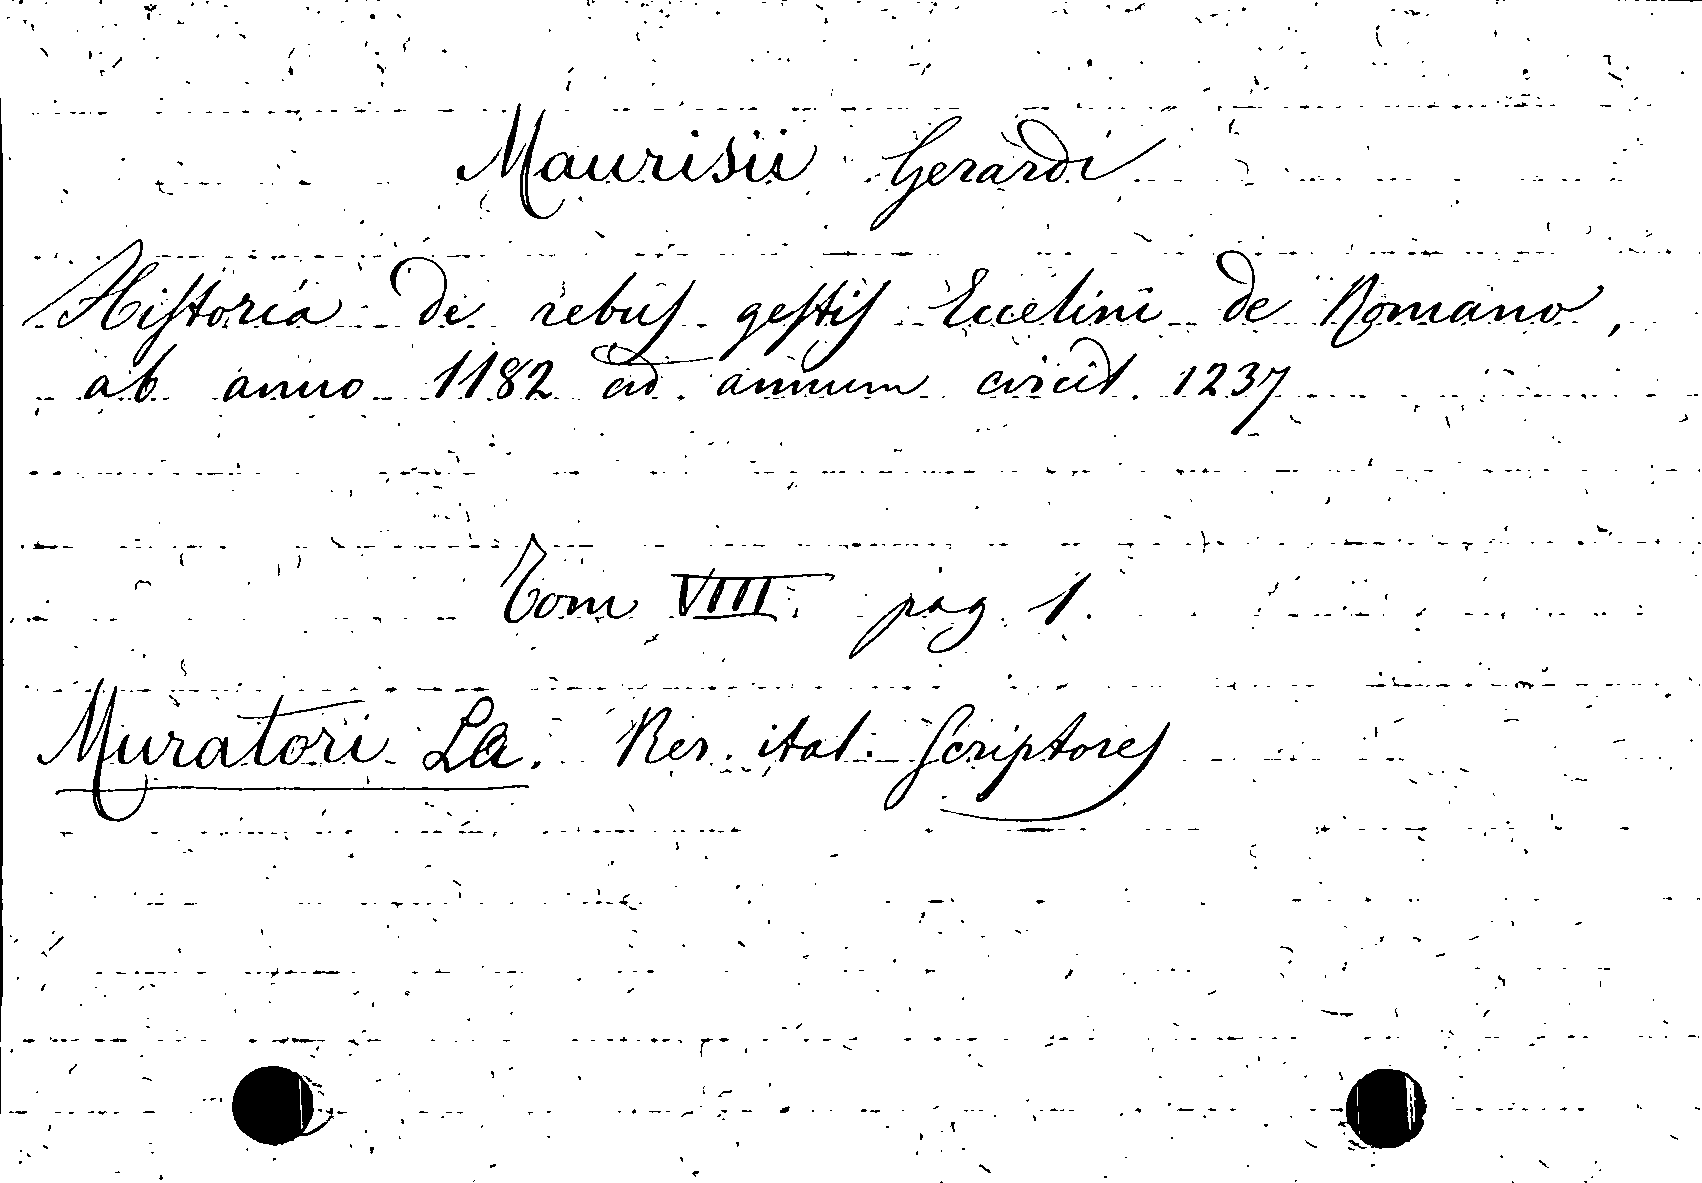 Maurisii Gerardi
Historia de rebus gestis Eccelini de Romano,
ab anno 1182 ad annum circit. 1237
Tom VIII. pag 1.
Muratori La. Rer. ital. Scriptores